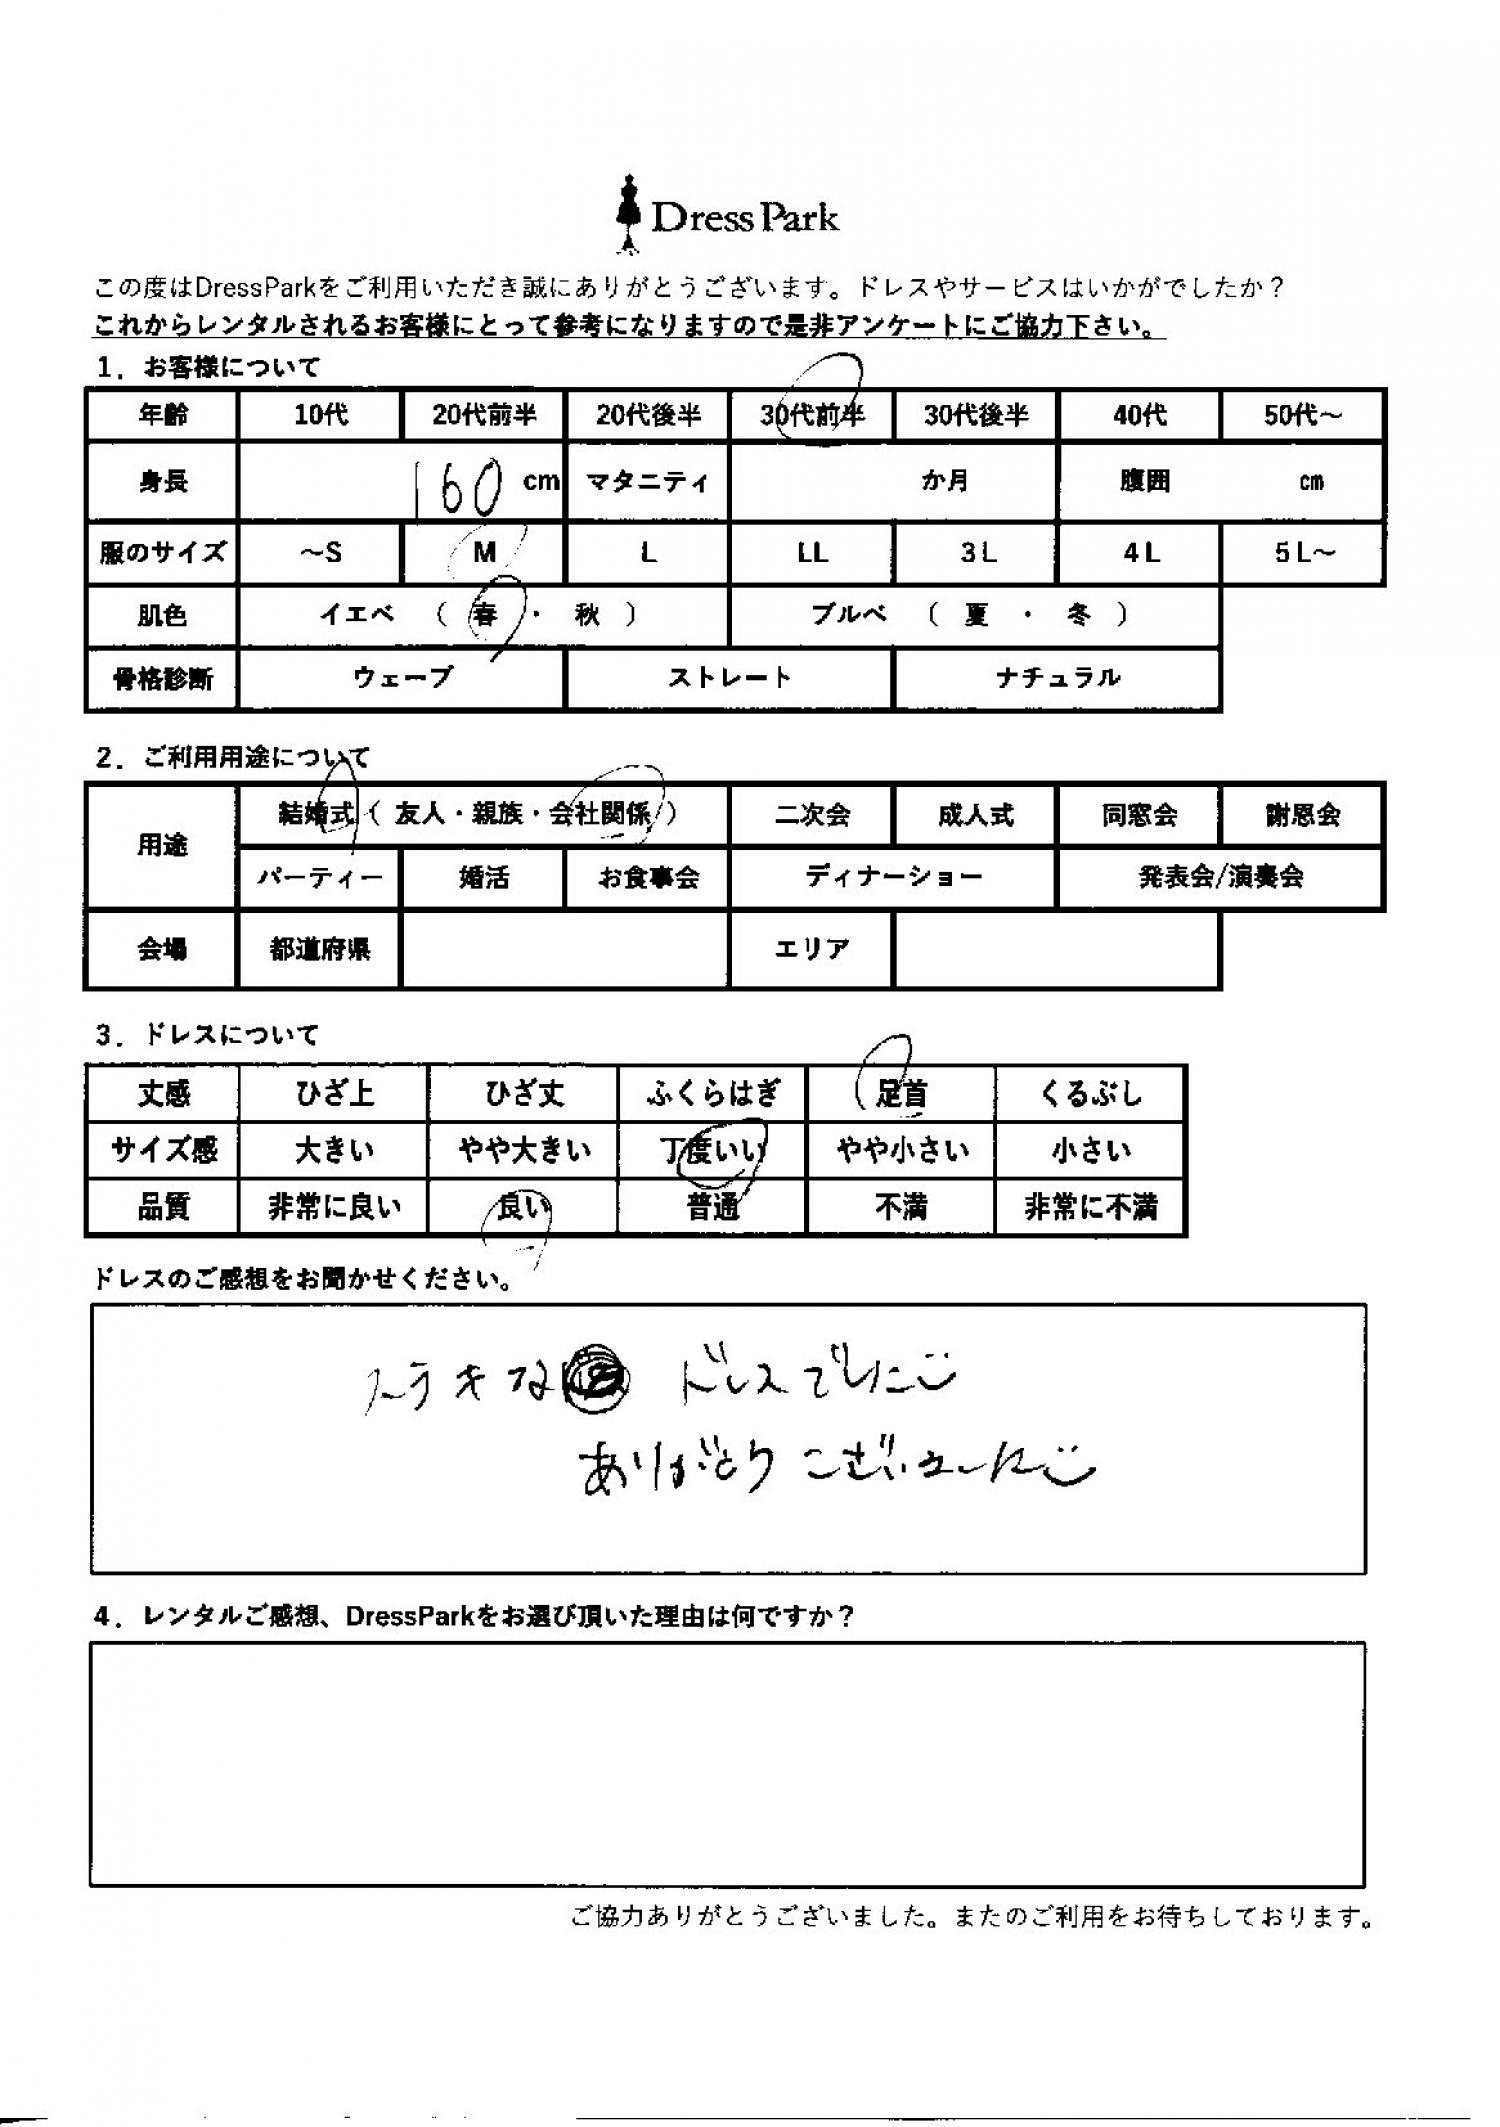 Dress Park
この度はDressParkをご利用いただき誠にありがとうございます。ドレスやサービスはいかがでしたか？
これからレンタルされるお客様にとって参考になりますので是非アンケートにご協力下さい。
1．お客様について
年齢 10代 20代前半 20代後半 30代前半 30代後半 40代 50代～
身長 160 cm マタニティ か月 腹囲 cm
服のサイズ ～S M L LL 3L 4L 5L～
肌色 イエベ （ 春 ・ 秋 ） ブルベ （ 夏 ・ 冬 ）
骨格診断 ウェーブ ストレート ナチュラル
2．ご利用用途について
用途 結婚式（ 友人・親族・会社関係 ） 二次会 成人式 同窓会 謝恩会
パーティー 婚活 お食事会 ディナーショー 発表会/演奏会
会場 都道府県 エリア
3．ドレスについて
丈感 ひざ上 ひざ丈 ふくらはぎ 足首 くるぶし
サイズ感 大きい やや大きい 丁度いい やや小さい 小さい
品質 非常に良い 良い 普通 不満 非常に不満
ドレスのご感想をお聞かせください。
ステキな ドレスでした
ありがとうございました
4．レンタルご感想、DressParkをお選び頂いた理由は何ですか？
ご協力ありがとうございました。またのご利用をお待ちしております。